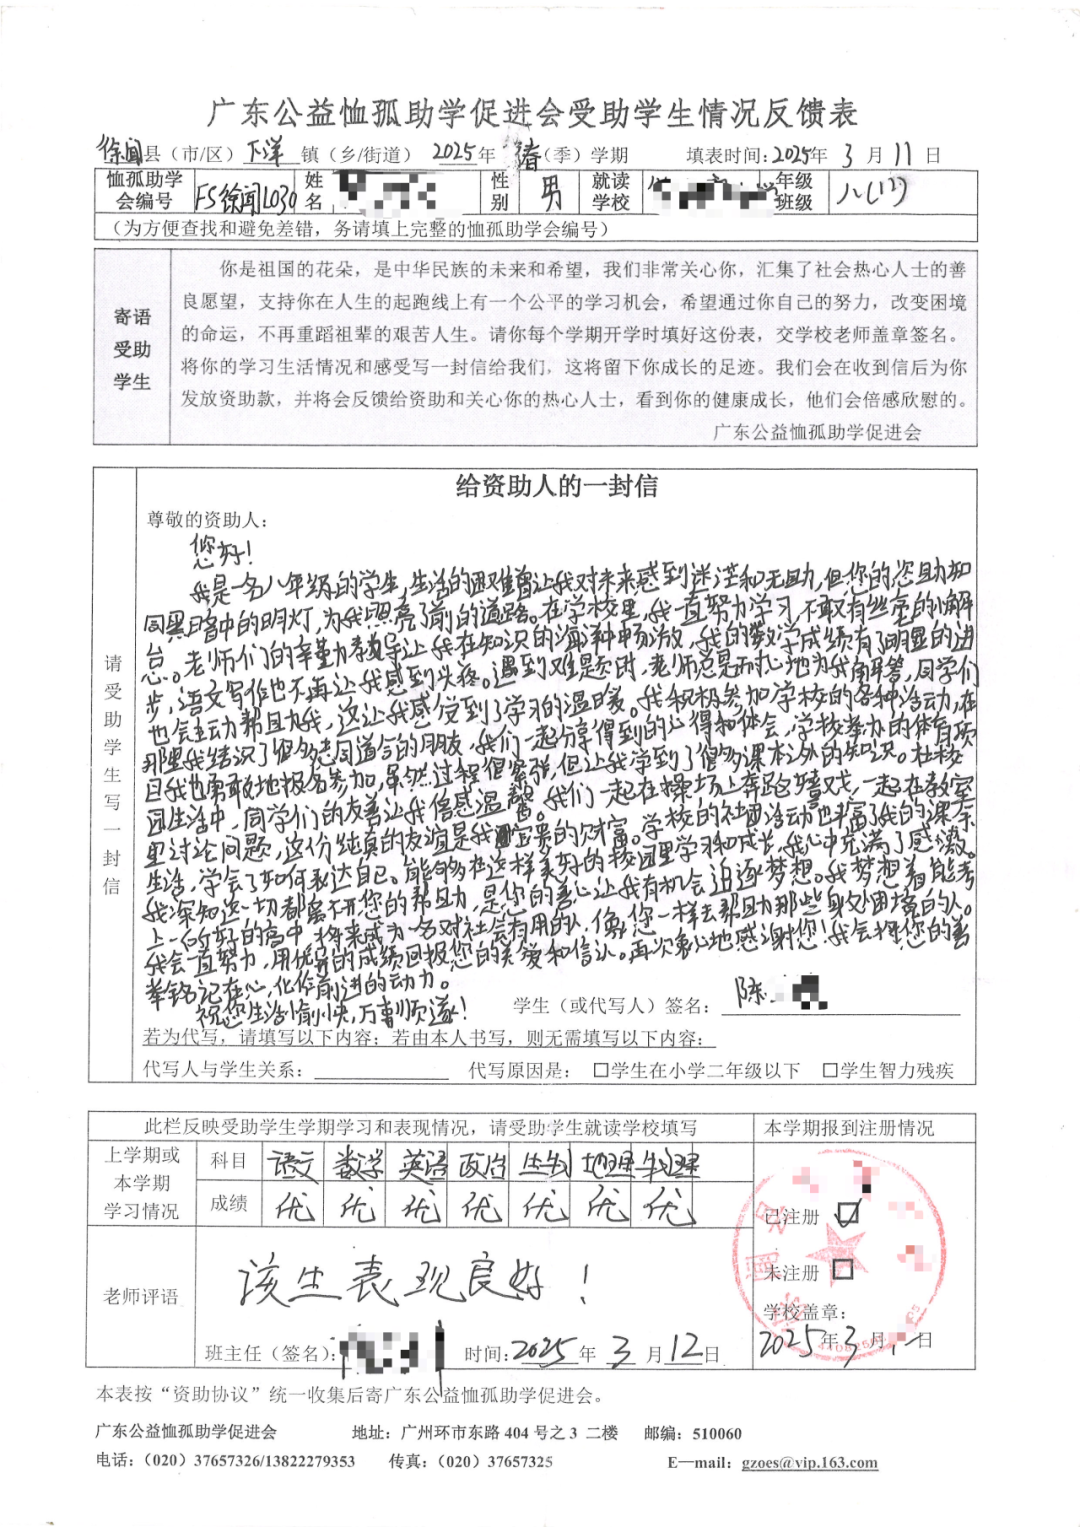 广东公益恤孤助学促进会受助学生情况反馈表
徐闻县（市/区）下洋镇（乡/街道）2025年春（季）学期 填表时间：2025年3月11日
恤孤助学会编号 FS徐闻L030 姓名 性别 男 就读学校 年级班级 八(12)
（为方便查找和避免差错，务请填上完整的恤孤助学会编号）
寄语受助学生
你是祖国的花朵，是中华民族的未来和希望，我们非常关心你，汇集了社会热心人士的善
良愿望，支持你在人生的起跑线上有一个公平的学习机会，希望通过你自己的努力，改变困境
的命运，不再重蹈祖辈的艰苦人生。请你每个学期开学时填好这份表，交学校老师盖章签名。
将你的学习生活情况和感受写一封信给我们，这将留下你成长的足迹。我们会在收到信后为你
发放资助款，并将会反馈给资助和关心你的热心人士，看到你的健康成长，他们会倍感欣慰的。
广东公益恤孤助学促进会
请受助学生写一封信
给资助人的一封信
尊敬的资助人：
您好！
我是一名八年级的学生，生活的困难曾让我对未来感到迷茫和无助，但您的资助如
同黑暗中的明灯，为我照亮了前的道路。在学校里，我一直努力学习，不敢有丝毫的懈
怠。老师们的辛勤教导让我在知识的海洋中畅游，我的数学成绩有了明显的进
步，语文写作也不再让我感到头疼。遇到难题时，老师总是耐心地为我解答，同学们
也会主动帮助我，这让我感受到了学习的温暖。我积极参加学校的各种活动，在
那里我结识了很多志同道合的朋友，我们一起分享得到的心得和体会，学校举办的体育项
目我也勇敢地报名参加，虽然过程很紧张，但让我学到了很多课本之外的知识。在校
园生活中，同学们的友善让我倍感温馨。我们一起在操场上奔跑嬉戏，一起在教室
里讨论问题，这份纯真的友谊是我宝贵的财富。学校的社团活动也丰富了我的课余
生活，学会了如何表达自己。能够在这样美好的校园里学习和成长，我心中充满了感激。
我深知这一切都离不开您的帮助，是您的善心让我有机会追逐梦想。我梦想着能考
上一所好的高中，将来成为一名对社会有用的人，像您一样去帮助那些身处困境的人。
我会一直努力，用优异的成绩回报您的关爱和信认。再次衷心地感谢您！我会将您的善
举铭记在心，化作前进的动力。
祝您生活愉快，万事顺遂！
学生（或代写人）签名：陈
若为代写，请填写以下内容；若由本人书写，则无需填写以下内容：
代写人与学生关系： 代写原因是： □学生在小学二年级以下 □学生智力残疾
此栏反映受助学生学期学习和表现情况，请受助学生就读学校填写 本学期报到注册情况
上学期或本学期学习情况
科目 语文 数学 英语 政治 历史 地理 生理
成绩 优 优 优 优 优 优 优
已注册 ☑
未注册 □
学校盖章：
2025年3月 日
老师评语
该生表现良好！
班主任（签名）： 时间：2025年3月12日
本表按“资助协议”统一收集后寄广东公益恤孤助学促进会。
广东公益恤孤助学促进会 地址：广州环市东路 404 号之 3 二楼 邮编：510060
电话：（020）37657326/13822279353 传真：（020）37657325 E—mail：gzoes@vip.163.com